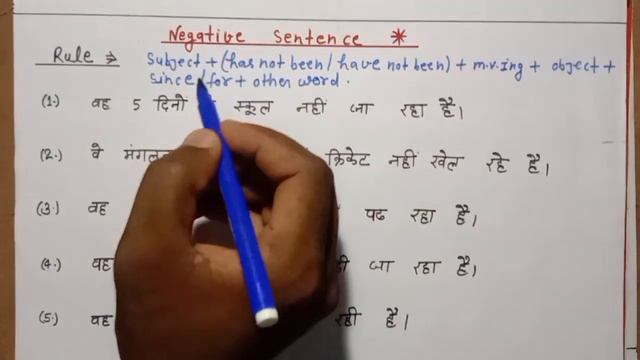 Negative Sentence *
Rule ⇒ Subject + (has not been / have not been) + m.v. ing + object +
since / for + other word.
(1.) वह 5 दिनों स्कूल नहीं जा रहा है।
(2.) वे क्रिकेट नहीं खेल रहे हैं।
(3.) वह पढ रहा है।
(4.) वह जा रहा है।
(5.) वह रही है।